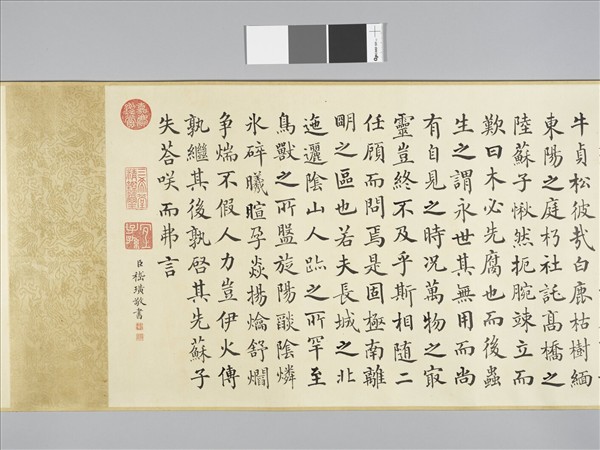 牛貞松彼哉白鹿枯樹緬
東陽之庭朽社託髙橋之
陸蘇子愀然扼腕竦立而
歎曰木必先腐也而後蟲
生之謂永世其無用而尚
有自見之時況萬物之㝡
靈豈終不及乎斯相隨二
任顧而問焉是固極南離
眀之區也若夫長城之北
迤邐陰山人跡之所罕至
鳥獸之所盤旋陽燄陰燐
氷碎曦暄孕焱揚爚舒爓
爭煓不假人力豈伊火傳
孰繼其後孰啓其先蘇子
失荅咲而弗言
臣嵇璜敬書
三希堂精鑑璽
宜子孫